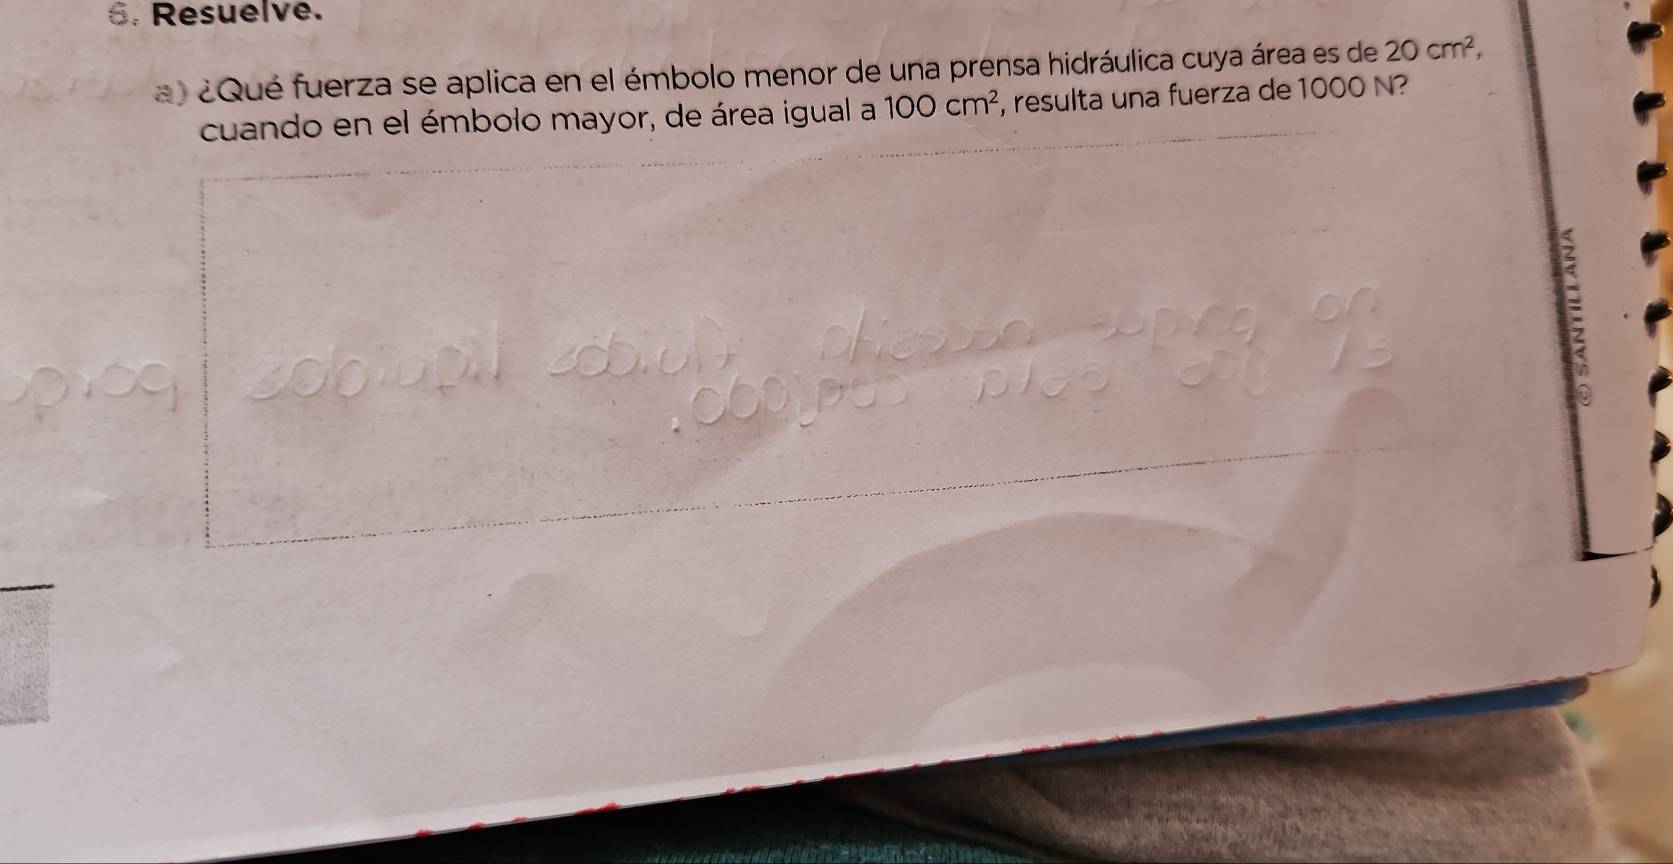 6. Resuelve.
a) ¿Qué fuerza se aplica en el émbolo menor de una prensa hidráulica cuya área es de 20 cm²,
cuando en el émbolo mayor, de área igual a 100 cm², resulta una fuerza de 1000 N?
© SANTILLANA